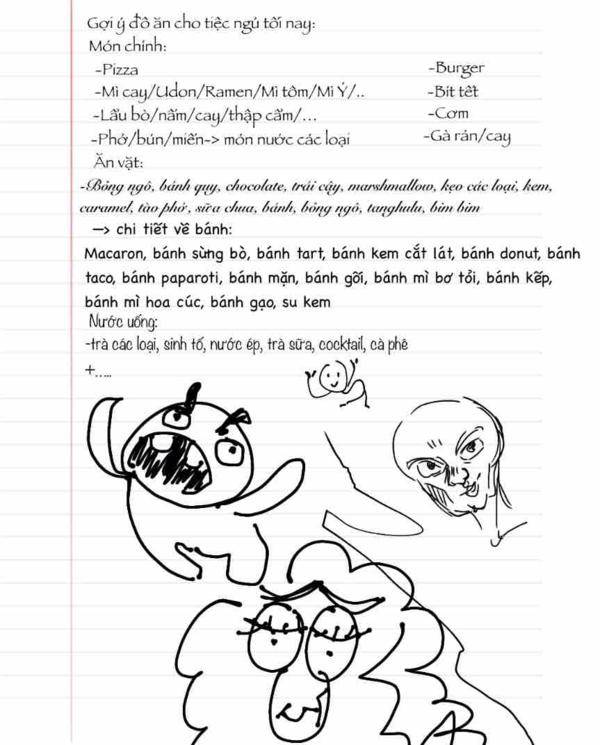 Gợi ý đồ ăn cho tiệc ngủ tối nay:
Món chính:
-Pizza
-Burger
-Mì cay/Udon/Ramen/Mì tôm/Mì Ý/..
-Bít tết
-Lẩu bò/nấm/cay/thập cẩm/...
-Cơm
-Phở/bún/miến-> món nước các loại
-Gà rán/cay
Ăn vặt:
-Bỏng ngô, bánh quy, chocolate, trái cây, marshmallow, kẹo các loại, kem,
caramel, tào phớ, sữa chua, bánh, bỏng ngô, tanghulu, bim bim
-> chi tiết về bánh:
Macaron, bánh sừng bò, bánh tart, bánh kem cắt lát, bánh donut, bánh
taco, bánh paparoti, bánh mặn, bánh gối, bánh mì bơ tỏi, bánh kếp,
bánh mì hoa cúc, bánh gạo, su kem
Nước uống:
-trà các loại, sinh tố, nước ép, trà sữa, cocktail, cà phê
+.....